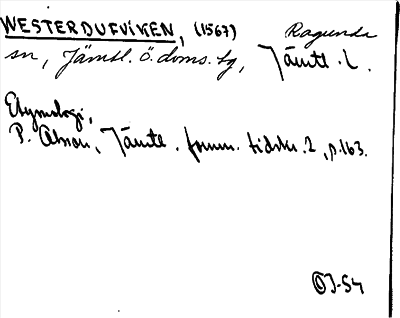 WESTERDUFVIKEN, (1567) Ragunda
sn, Jämtl. ö. doms. tg, Jämtl. L.
Etymologi,
P. Olsson, Jämtl. fornm. tidskr. 2, p. 163.
OJ-54